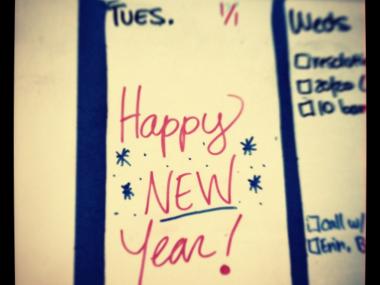 TUES. 1/1
Happy
NEW
Year!
Weds
call w/
Erin,